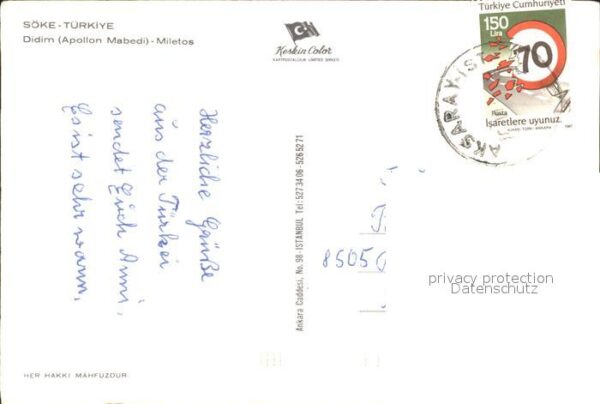 SÖKE - TÜRKİYE
Didim (Apollon Mabedi) - Miletos
Keskin Color
KARTPOSTALCILIK LIMITED ŞİRKETİ
Türkiye Cumhuriyeti
150
Lira
70
Posta
İşaretlere uyunuz.
1987
AKSARAY-İST
Herzliche Grüße
aus der Türkei
sendet Euch Anni,
Es ist sehr warm.
Ankara Caddesi, No. 98 - ISTANBUL Tel: 5273406 - 5265271
8505
privacy protection
Datenschutz
HER HAKKI MAHFUZDUR